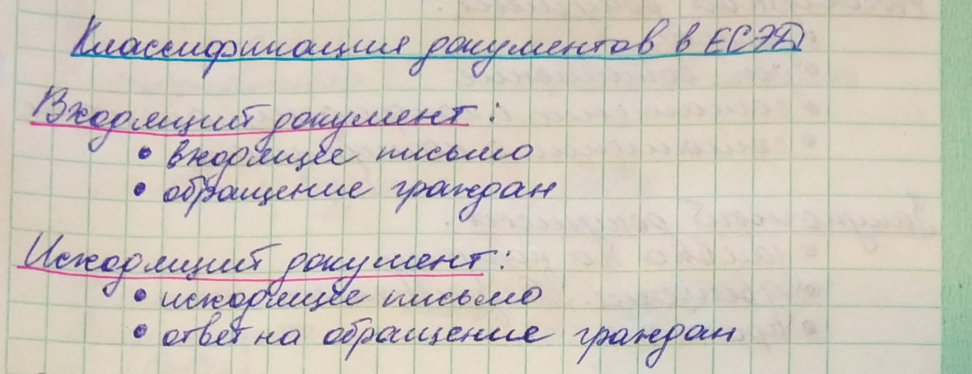 Классификация документов в ЕСЭД
Входящий документ:
• входящее письмо
• обращение граждан
Исходящий документ:
• исходящее письмо
• ответ на обращение граждан